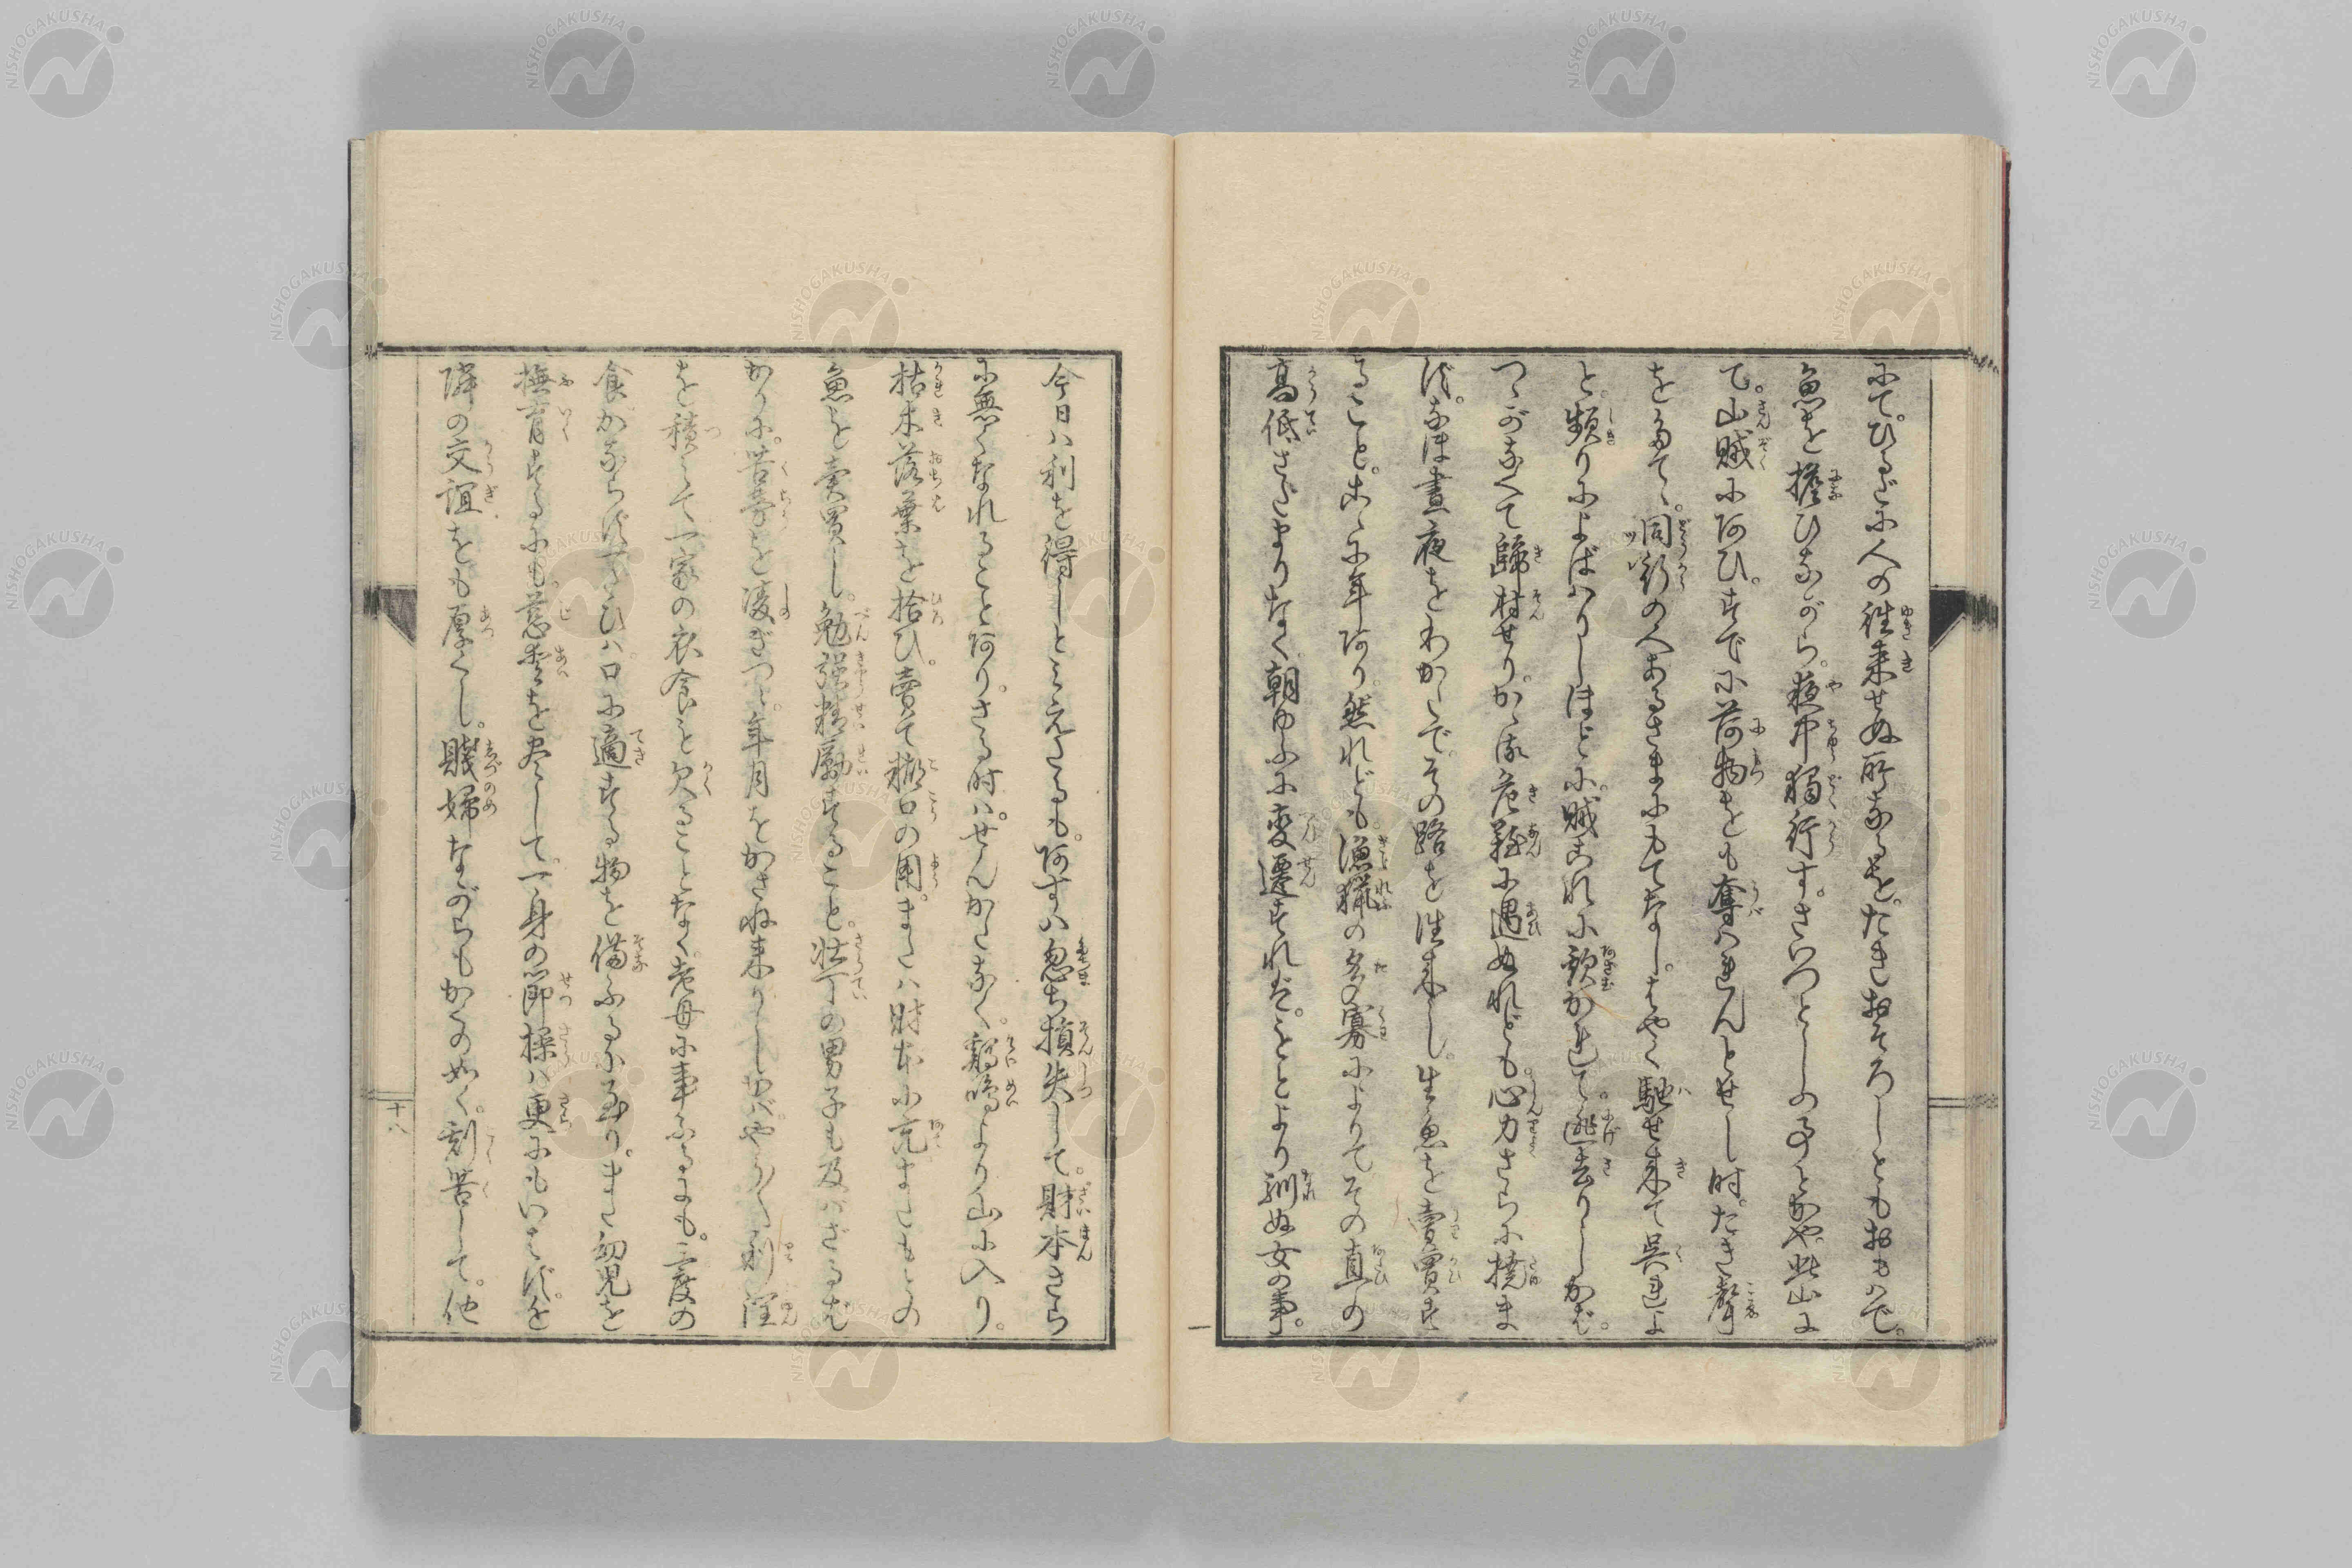 にて。ひるだに人の往来せぬ所なるを。たきおそろしともおもハで。
魚を擔ひながら。夜中獨行す。さいつとしの事とかや。此山に
て。山賊に阿ひ。すでに荷物をも奪ハれんとせし時。たき聲
をあげて。同行の人あるさまにもてなし。はやく馳せ来て呉よ
と。頻りによばハりしほどに。賊これに欺かれて。逃去りしかば。
つゝがなくて歸村せり。かゝる危難に遇ぬれども。心力さらに撓ま
ず。なほ晝夜をわかたで。その路を往来し。生魚を賣買す
ること。こゝに年阿り。然れども。漁猟の多寡によりてその直の
高低さだまりなく。朝ゆふに変遷すれば。もとより馴ぬ女の事。
今日ハ利を得しとみえたるも。阿すハ忽ち損失して。財本さら
に無くなれること阿り。さる時ハ。せんかたなく。鶏鳴より山に入り。
枯木落葉を拾ひ。賣て糊口の用。またハ財本に充。またもとの
魚を賣買し。勉強精勵すること。壮丁の男子も及バざるば
かりに。苦労を凌ぎつゝ。年月をかさね来りしかバ。やうやく利潤
を積みて。一家の衣食を欠ることなく。老母に事ふるにも。三度の
食かならず一たびハ。口に適する物を備ふるに至り。また幼児を
撫育するにも。慈愛を尽くして。一身の節操ハ更にもいはず。を
隣の交誼をも厚くし。賤婦ながらもかくの如く。刻苦して。他
十八
NISHOGAKUSHA